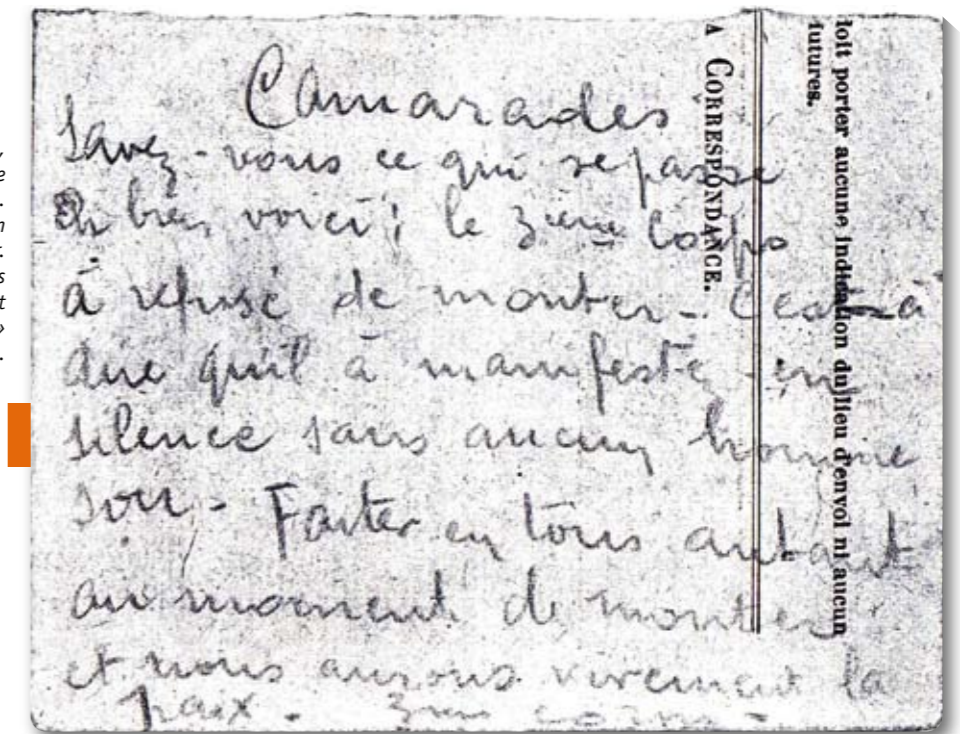 Camarades
Savez-vous ce qui se passe
Eh bien voici! le 3ieme Corps
à refusé de monter - C'est à
dire qu'il à manifesté en
silence sans aucun homme
sou - Faites en tous autant
au moment de monter
et nous aurons vivement la
paix - 3eme corps -
A CORRESPONDANCE.
doit porter aucune indication du lieu d'envoi ni aucun
futures.
e
.
n
.
s
t
»
.